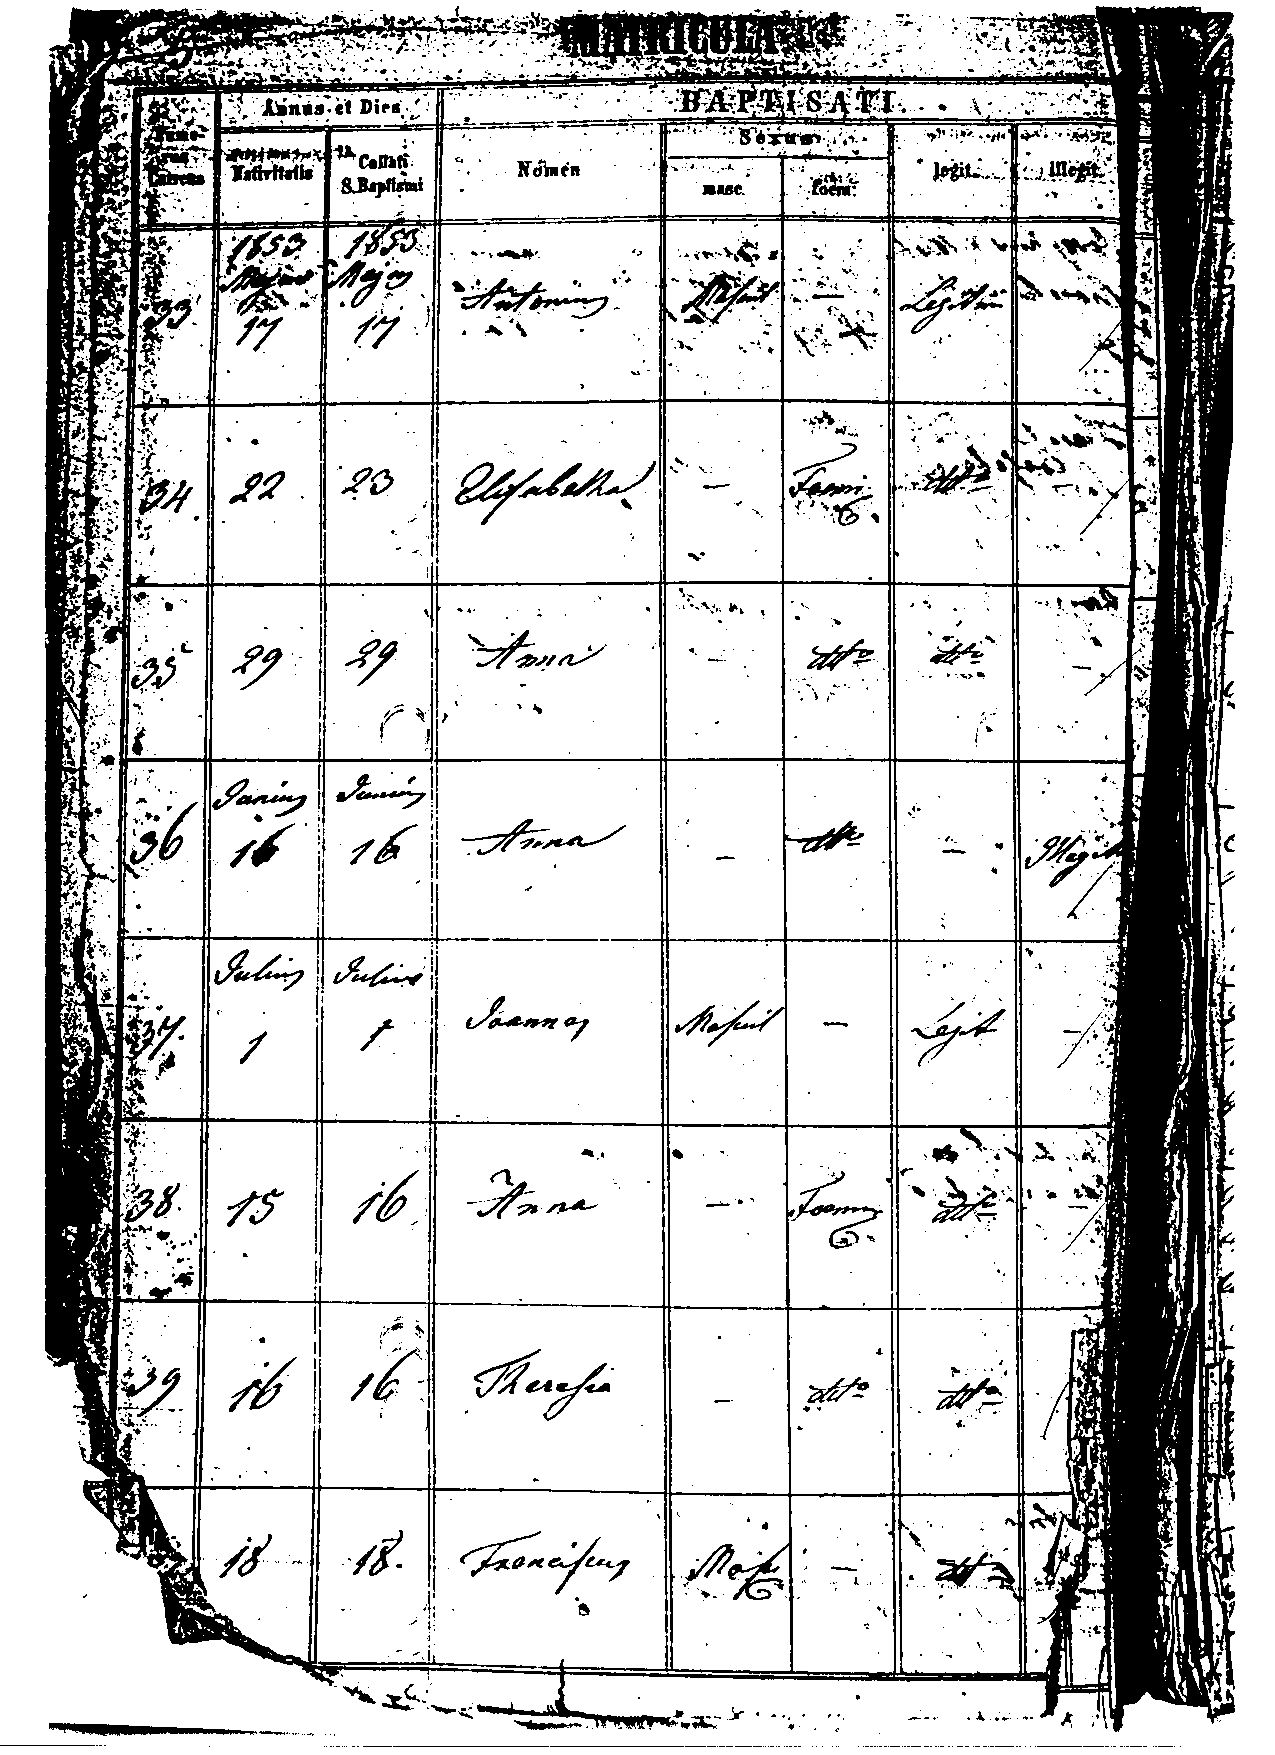 MATRICULA
Annus et Dies BAPTISATI
Nativitatis Collati S. Baptismi Nomen Sexus masc. foem. legit. illegit.
1853 1853
Majus Majus
33 17 17 Antonius Mascul — Legitim
34 22 23 Elisabetha — Foemi
35 29 29 Anna — dtto dtto —
Junius Junius
36 16 16 Anna — dtto — Illegit
Julius Julius
37. 1 1 Joannes Mascul — Legit —
38. 15 16 Anna — Foemin dtto —
39 16 16 Theresia — dtto dtto
18 18. Franciscus Masc — dtto